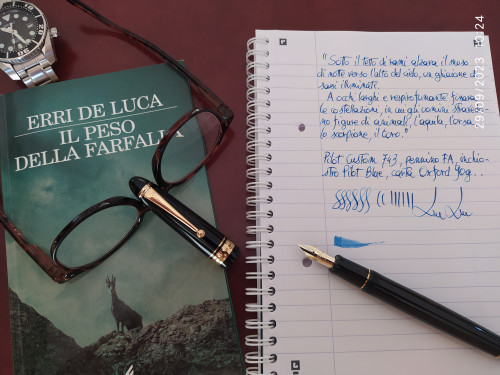 ERRI DE LUCA
IL PESO
DELLA FARFALLA
"Sotto il tetto di rami alzava il muso
di notte verso l'alto del cielo, un ghiaione di
sassi illuminati.
A occhi larghi e respiro fumante fissava
le costellazioni, in cui gli uomini stravedo-
no figure di animali, l'aquila, l'orsa,
lo scorpione, il toro."
Pilot Custom 743, pennino FA, inchio-
stro Pilot Blue, carta Oxford
29/09/2023 10:24